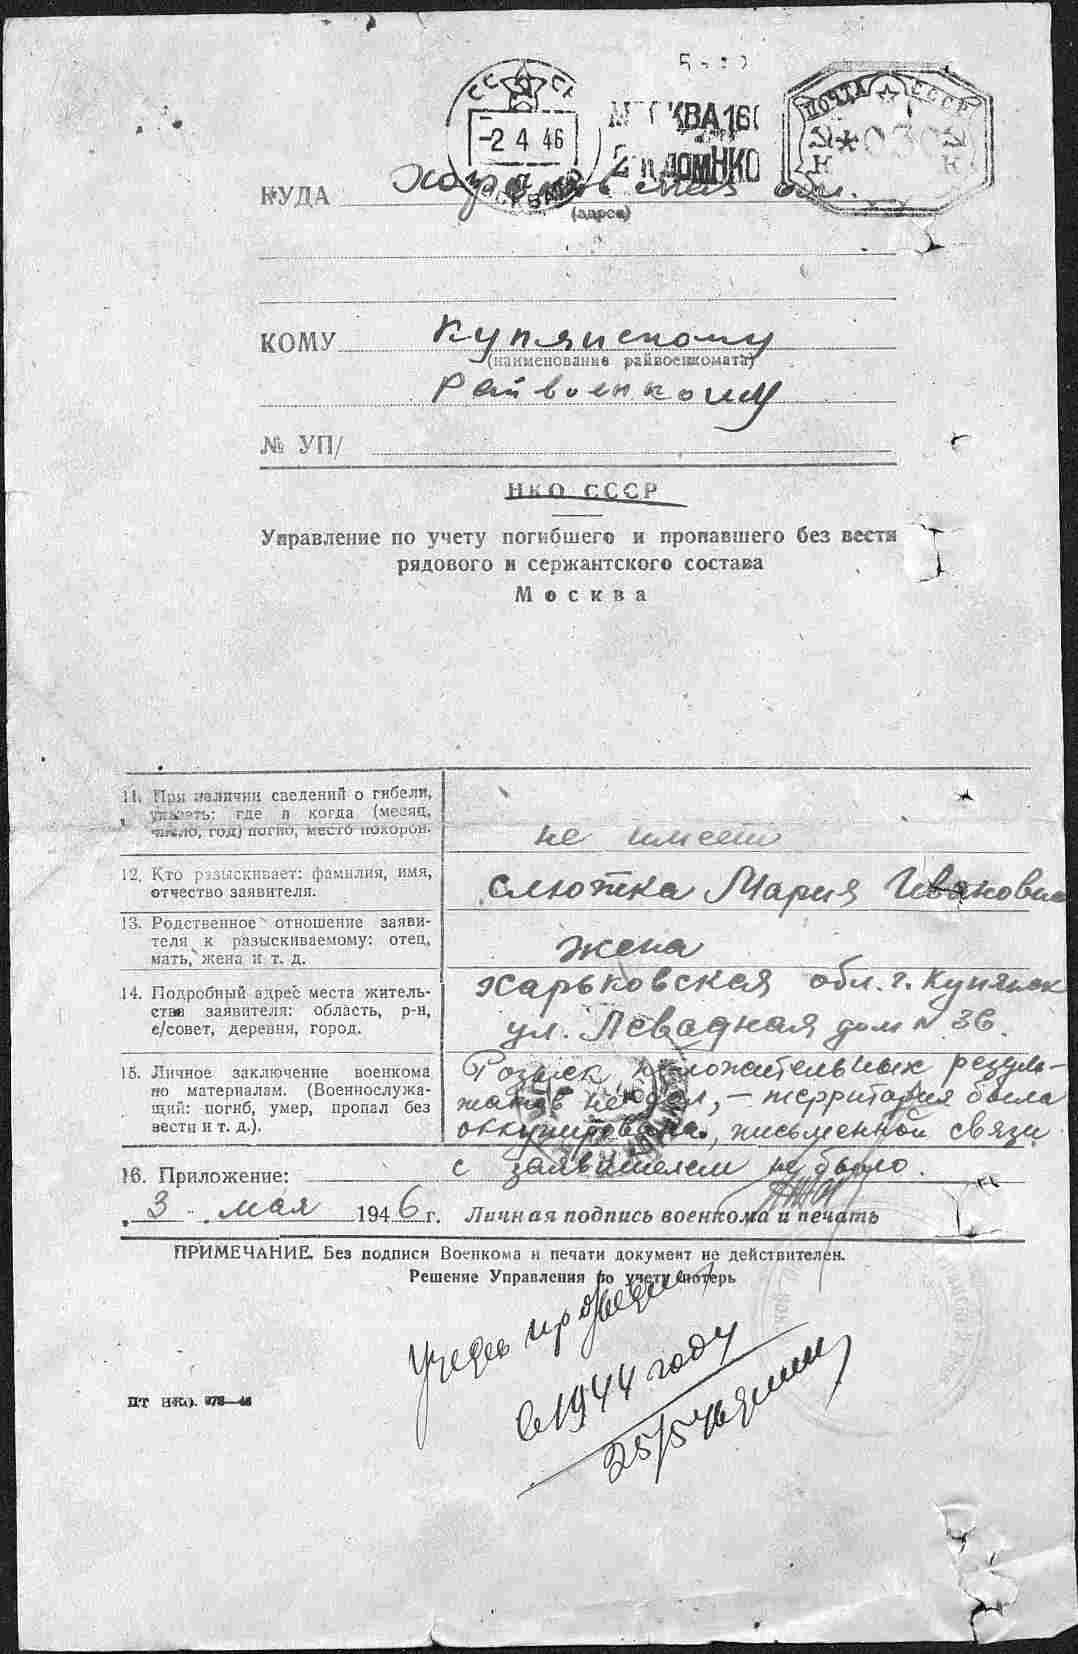 СССР
-2 4 46
МОСКВА
МОСКВА 160
2й ДОМ НКО
ПОЧТА СССР
030
КУДА Харьковская обл.
(адрес)
КОМУ Купянскому
(наименование райвоенкомата)
Райвоенкому
№ УП/
НКО СССР
Управление по учету погибшего и пропавшего без вести
рядового и сержантского состава
Москва
11. При наличии сведений о гибели,
указать: где и когда (месяц,
число, год) погиб, место похорон.
не имеет
12. Кто разыскивает: фамилия, имя,
отчество заявителя.
Слюжка Мария Ивановна
13. Родственное отношение заяви-
теля к разыскиваемому: отец,
мать, жена и т. д.
жена
14. Подробный адрес места житель-
ства заявителя: область, р-н,
с/совет, деревня, город.
Харьковская обл. г. Купянск
ул. Левадная дом № 36.
15. Личное заключение военкома
по материалам. (Военнослужа-
щий: погиб, умер, пропал без
вести и т. д.).
Розыск положительных резуль-
татов не дал, – территория была
оккупирована, письменной связи
с заявителем не было.
16. Приложение:
3 мая 1946 г. Личная подпись военкома и печать
ПРИМЕЧАНИЕ. Без подписи Военкома и печати документ не действителен.
Решение Управления по учету потерь
в 1944 году
25/5
ПТ НКО.